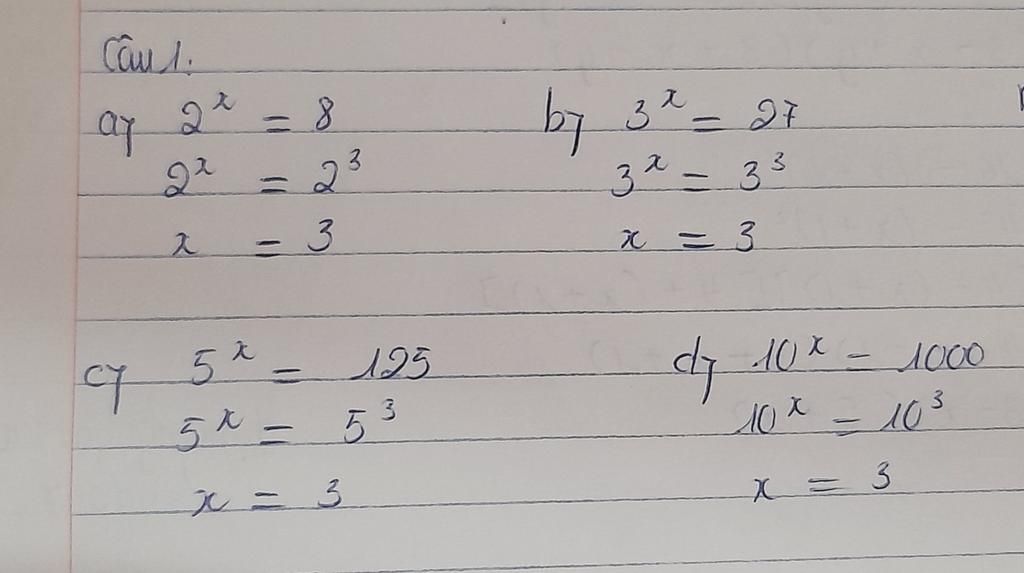 Câu 1.
a) 2^x = 8
2^x = 2^3
x = 3
b) 3^x = 27
3^x = 3^3
x = 3
c) 5^x = 125
5^x = 5^3
x = 3
d) 10^x = 1000
10^x = 10^3
x = 3